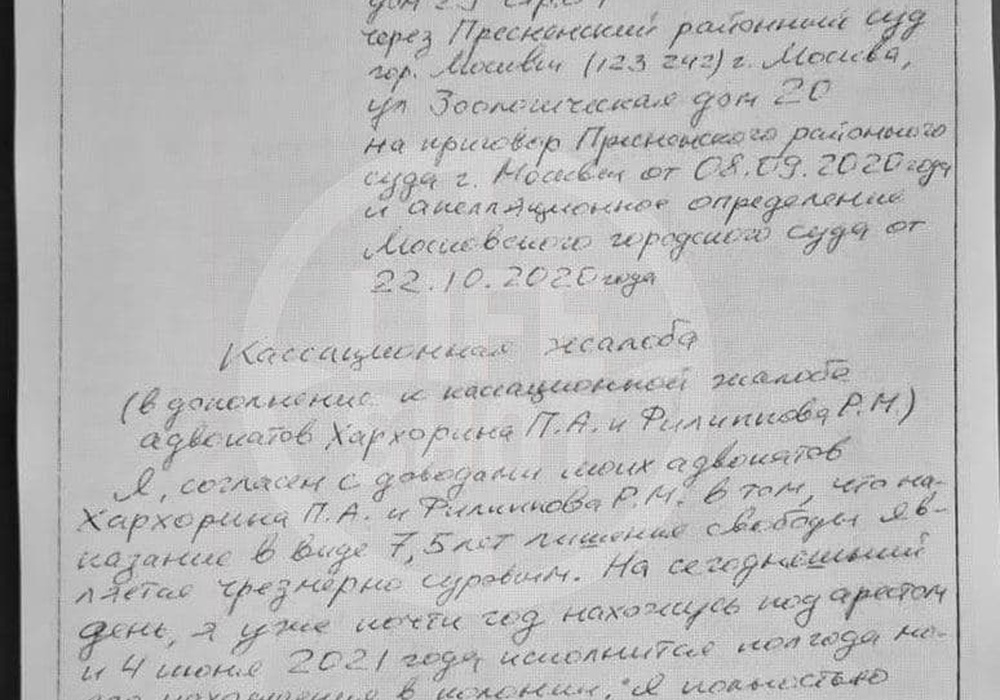 дом 23 стр.
через Пресненский районный суд
гор. Москвы (123 242) г. Москва,
ул Зоологическая дом 20
на приговор Пресненского районного
суда г. Москвы от 08.09.2020 года
и апелляционное определение
Московского городского суда от
22.10.2020 года
Кассационная жалоба
(в дополнение к кассационной жалобе
адвокатов Хархорина П.А. и Филиппова Р.М.)
Я, согласен с доводами моих адвокатов
Хархорина П.А. и Филиппова Р.М. в том, что на-
казание в виде 7,5 лет лишения свободы яв-
ляется чрезмерно суровым. На сегодняшний
день, я уже почти год нахожусь под арестом
и 4 июня 2021 года исполнится полгода мо-
его нахождения в колонии. Я полностью
LIFE